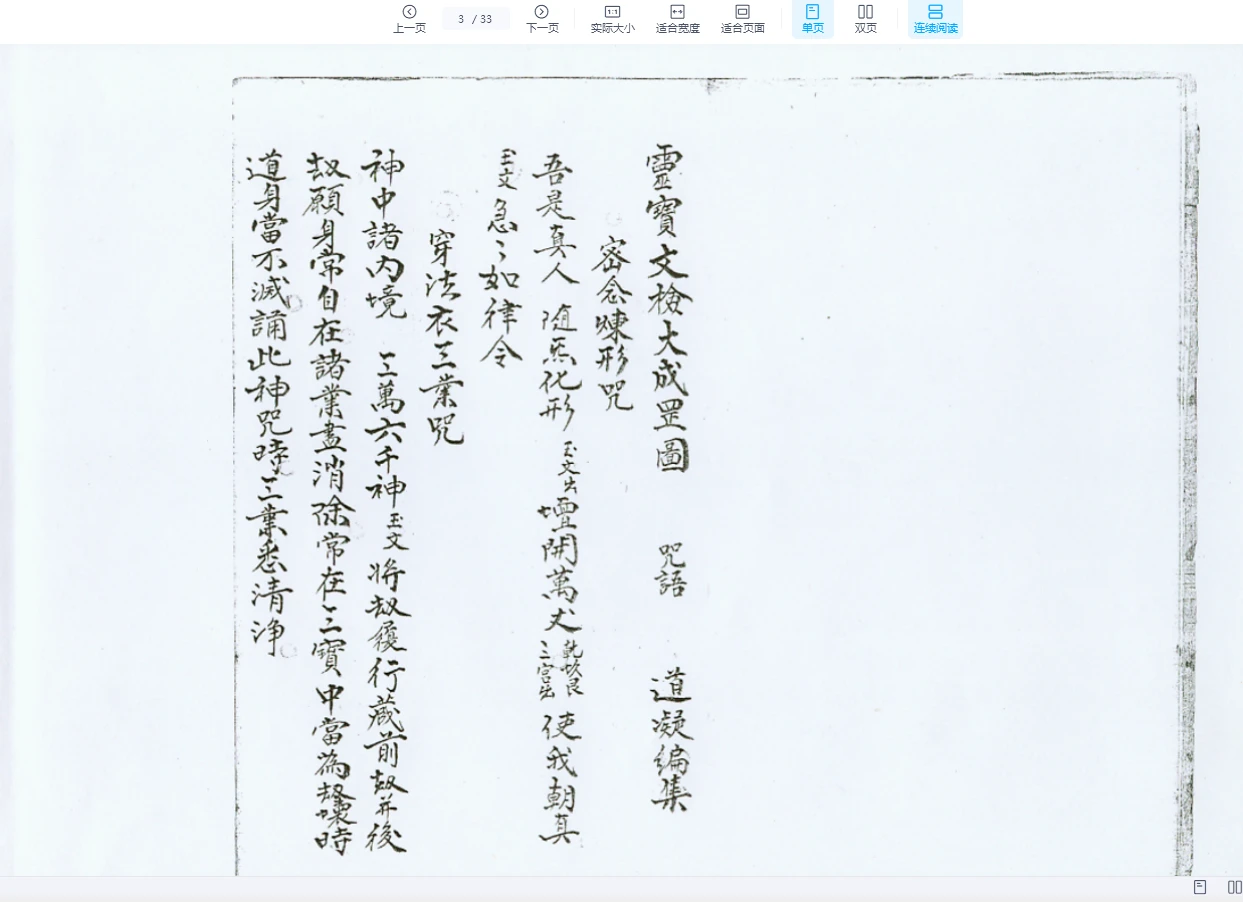 上一页
3 / 33
下一页
实际大小
适合宽度
适合页面
单页
双页
连续阅读
靈寶文檢大成罡圖 咒語 道凝編集
密念煉形咒
吾是真人 随炁化形 玉文出 壇開萬丈 乾坎艮三宮出 使我朝真
玉文 急〻如律令
穿法衣三業咒
神中諸內境 三萬六千神 玉文 将劫履行藏前劫并後
劫願身常自在諸業盡消除常在三寶中當為劫壞時
道身當不滅誦此神咒時三業悉清浄